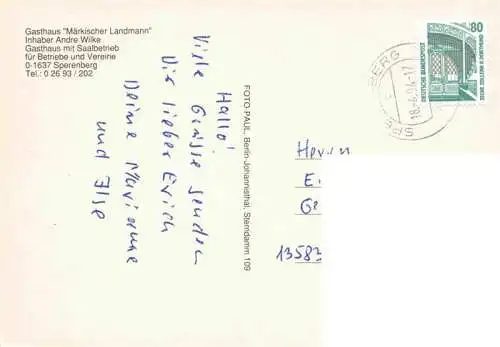 Gasthaus "Märkischer Landmann"
Inhaber Andre Wilke
Gasthaus mit Saalbetrieb
für Betriebe und Vereine
0-1637 Sperenberg
Tel.: 0 26 93 / 202
Hallo!
Viele Grüsse senden
Dir lieber Erich
Deine Marianne
und Ilse
FOTO-PAUL, Berlin-Johannisthal, Sterndamm 109
80
DEUTSCHE BUNDESPOST
18.-6.94-17
Herrn
E
Ge
13583